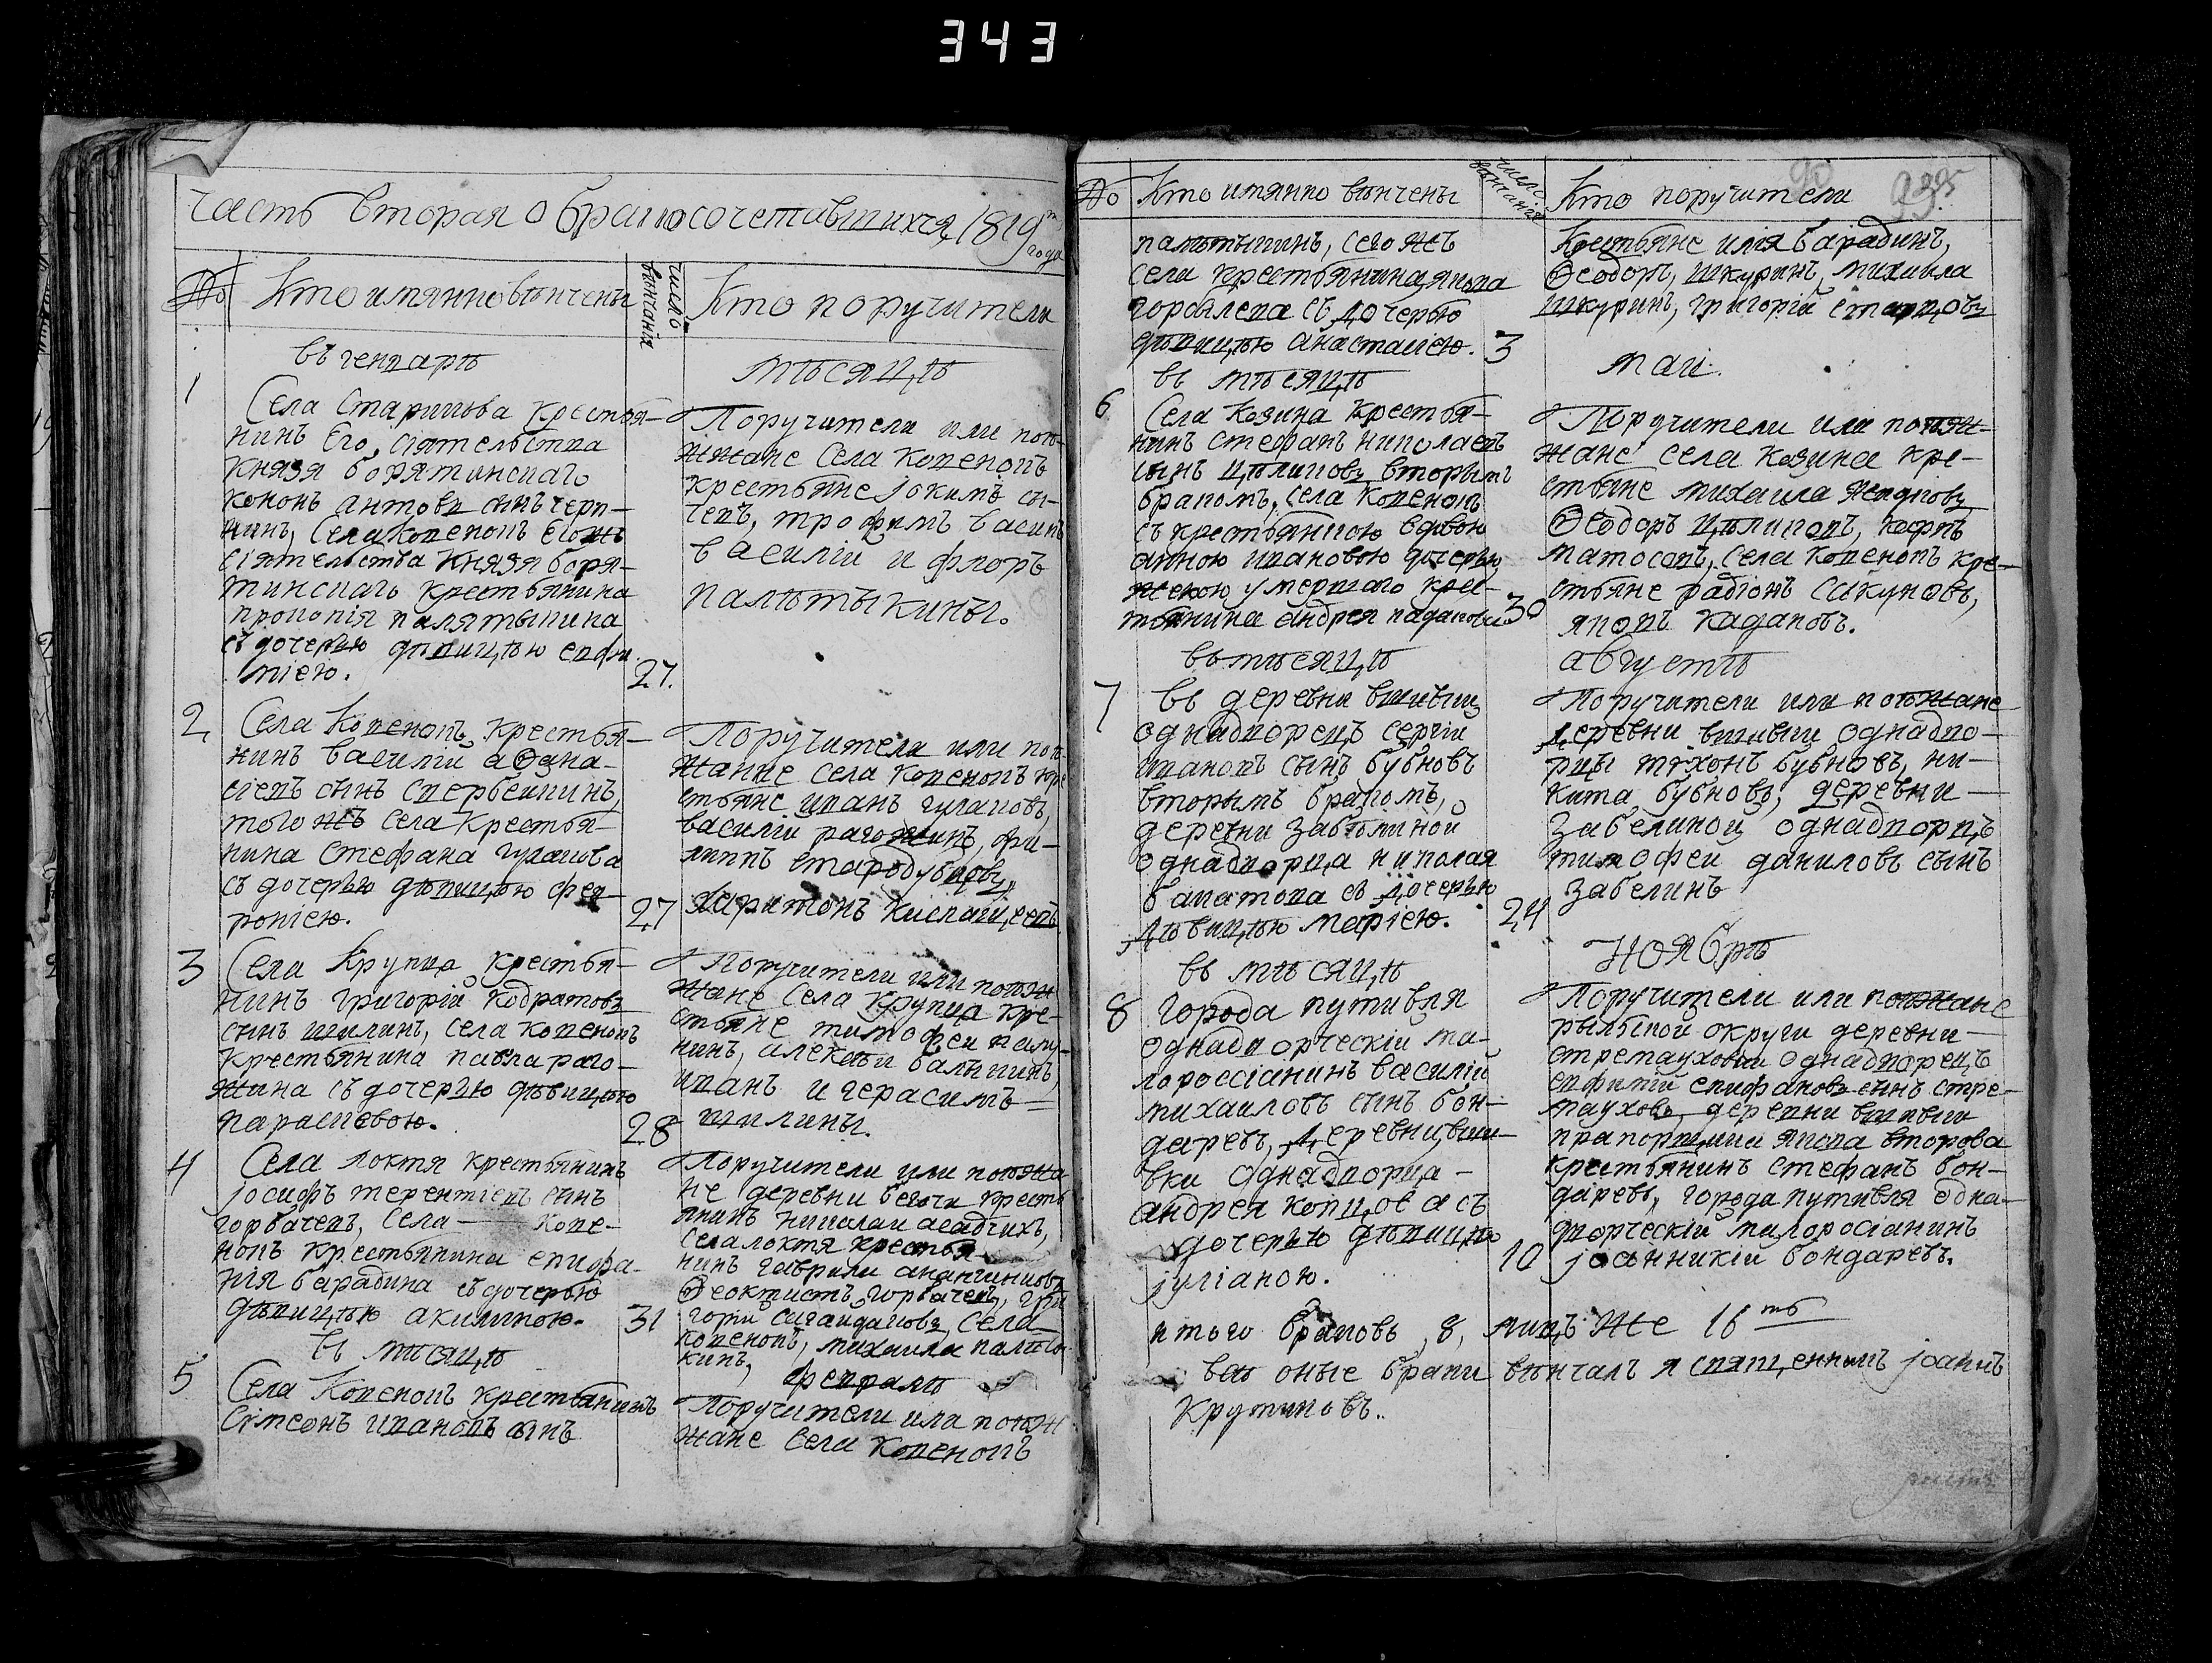 343
часть вторая о бракосочетавшихся 1819го
года
№ Кто имянно вѣнчены
число вѣнчанія
Кто поручители
въ генварѣ
мѣсяцѣ
1
Села Старикова Крестья-
нинъ Его сіятельства
Князя борятинскаго
кононъ антовъ сынъ черн-
Села Копенокъ Егожъ
сіятельства Князя боря-
тинскаго Крестьянина
прокопія палятыкина
съ дочерью дѣвицѣю евфи-
міею.
27.
Поручители или поѣз-
жжане Села Копенокъ
Крестьяне іокимъ сы-
чевъ, трофимъ васил
василіи и флоръ
палѣтыкины.
2
Села Копенокъ Крестья-
нинъ василіи аѲана-
сіевъ сынъ
тогожъ села Крестья-
нина Стефана гулакова
съ дочерью дѣвицѣю фев-
роніею.
27
Поручители или поѣз-
жанне Села Копенокъ кре
стьяне иванъ гулаковъ,
василіи рагожинъ, фи-
липпъ стародубцовъ,
харитонъ
3
Села Крупца Крестья-
нинъ григорій Кодратовъ
сынъ шилинъ, села копенокъ
Крестьянина павла раго-
жина съ дочерью дѣвицѣю
параскевою.
28
Поручители или поѣзж
жане Села Крупца Кре-
стьяне тимофеи
нинъ, алексѣи
иванъ и герасимъ
шилины.
4
Села локтя крестьянинъ
іосифъ терентіевъ сынъ
горбачевъ, Села — Копе-
нокъ крестьянина епифа-
нія барадина съ дочерью
дѣвицѣю акилиною.
31
Поручители или поѣзжа
не деревни бегоча кресть
янинъ николаи
села локтя крестья
нинъ гаврила
Ѳеоктистъ горбачевъ, гри
горіи Села
копенокъ, михаила палѣты-
кинъ,
въ мѣсяцѣ
февралѣ
5
Села Копенокъ крестьянинъ
Сімеонъ ивановъ сынъ
Поручители или поѣзж
жане Села Копенокъ
№ Кто имянно вѣнчены
число вѣнчанія
Кто поручители
90
палѣтыкинъ, сего жъ
села крестьянина якова
горбылева съ дочерью
дѣвицѣю анастасіею.
3
Крестьяне илія барадинъ,
Ѳеодоръ, шкуринъ, михаила
шкуринъ, григорій старцовъ
въ мѣсяцѣ
маи.
6
Села Козина Крестья-
нинъ стефанъ николаевъ
сынъ цѣликовъ вторымъ
бракомъ, села Копенокъ
съ крестьянкою вдовою
анною ивановою дочерью
женою умершаго крес-
тьянина андрея кадакова
30
Поручители или поѣзж-
жане села Козина кре-
стьяне михаила
Ѳеодоръ цѣликовъ, карпъ
матосовъ, Села Копенокъ кре-
стьяне радіонъ сикуновъ,
яковъ Кадаковъ.
въ мѣсяцѣ
августѣ
7
въ деревни вшивки
однадворецъ сергіи
ивановъ сынъ бубновъ
вторымъ бракомъ,
деревни забѣлиной
однадворца николая
булатова съ дочерью
дѣвицѣю маріею.
24
Поручители или поѣзжане
деревни вшивки однадво-
рцы тихонъ бубновъ, ни-
кита бубновъ, деревни —
забелиной однадворцъ
тимофеи даниловъ сынъ
забелинъ
въ мѣсяцѣ
ноябрѣ
8
города путивля
однадворческіи ма-
лороссіанинъ василій
михаиловъ сынъ бон-
даревъ, деревни вши-
вки однадворца —
андрея копцова съ
дочерью дѣвицѣю
іуліаною.
10
Поручители или поѣзжане
рыльской округи деревни —
стремауховки однадворецъ
евфимій епифановъ сынъ стре-
маухова, деревни вшивки
прапорщика якова второва
крестьянинъ Стефанъ бон-
даревъ, города путивля одна-
дворческій малоросіанинъ
іоанникій бондаревъ.
итого браковъ 8, лицъ же 16ть
всѣ оные браки вѣнчалъ я священникъ іоаннъ
Крутиковъ..